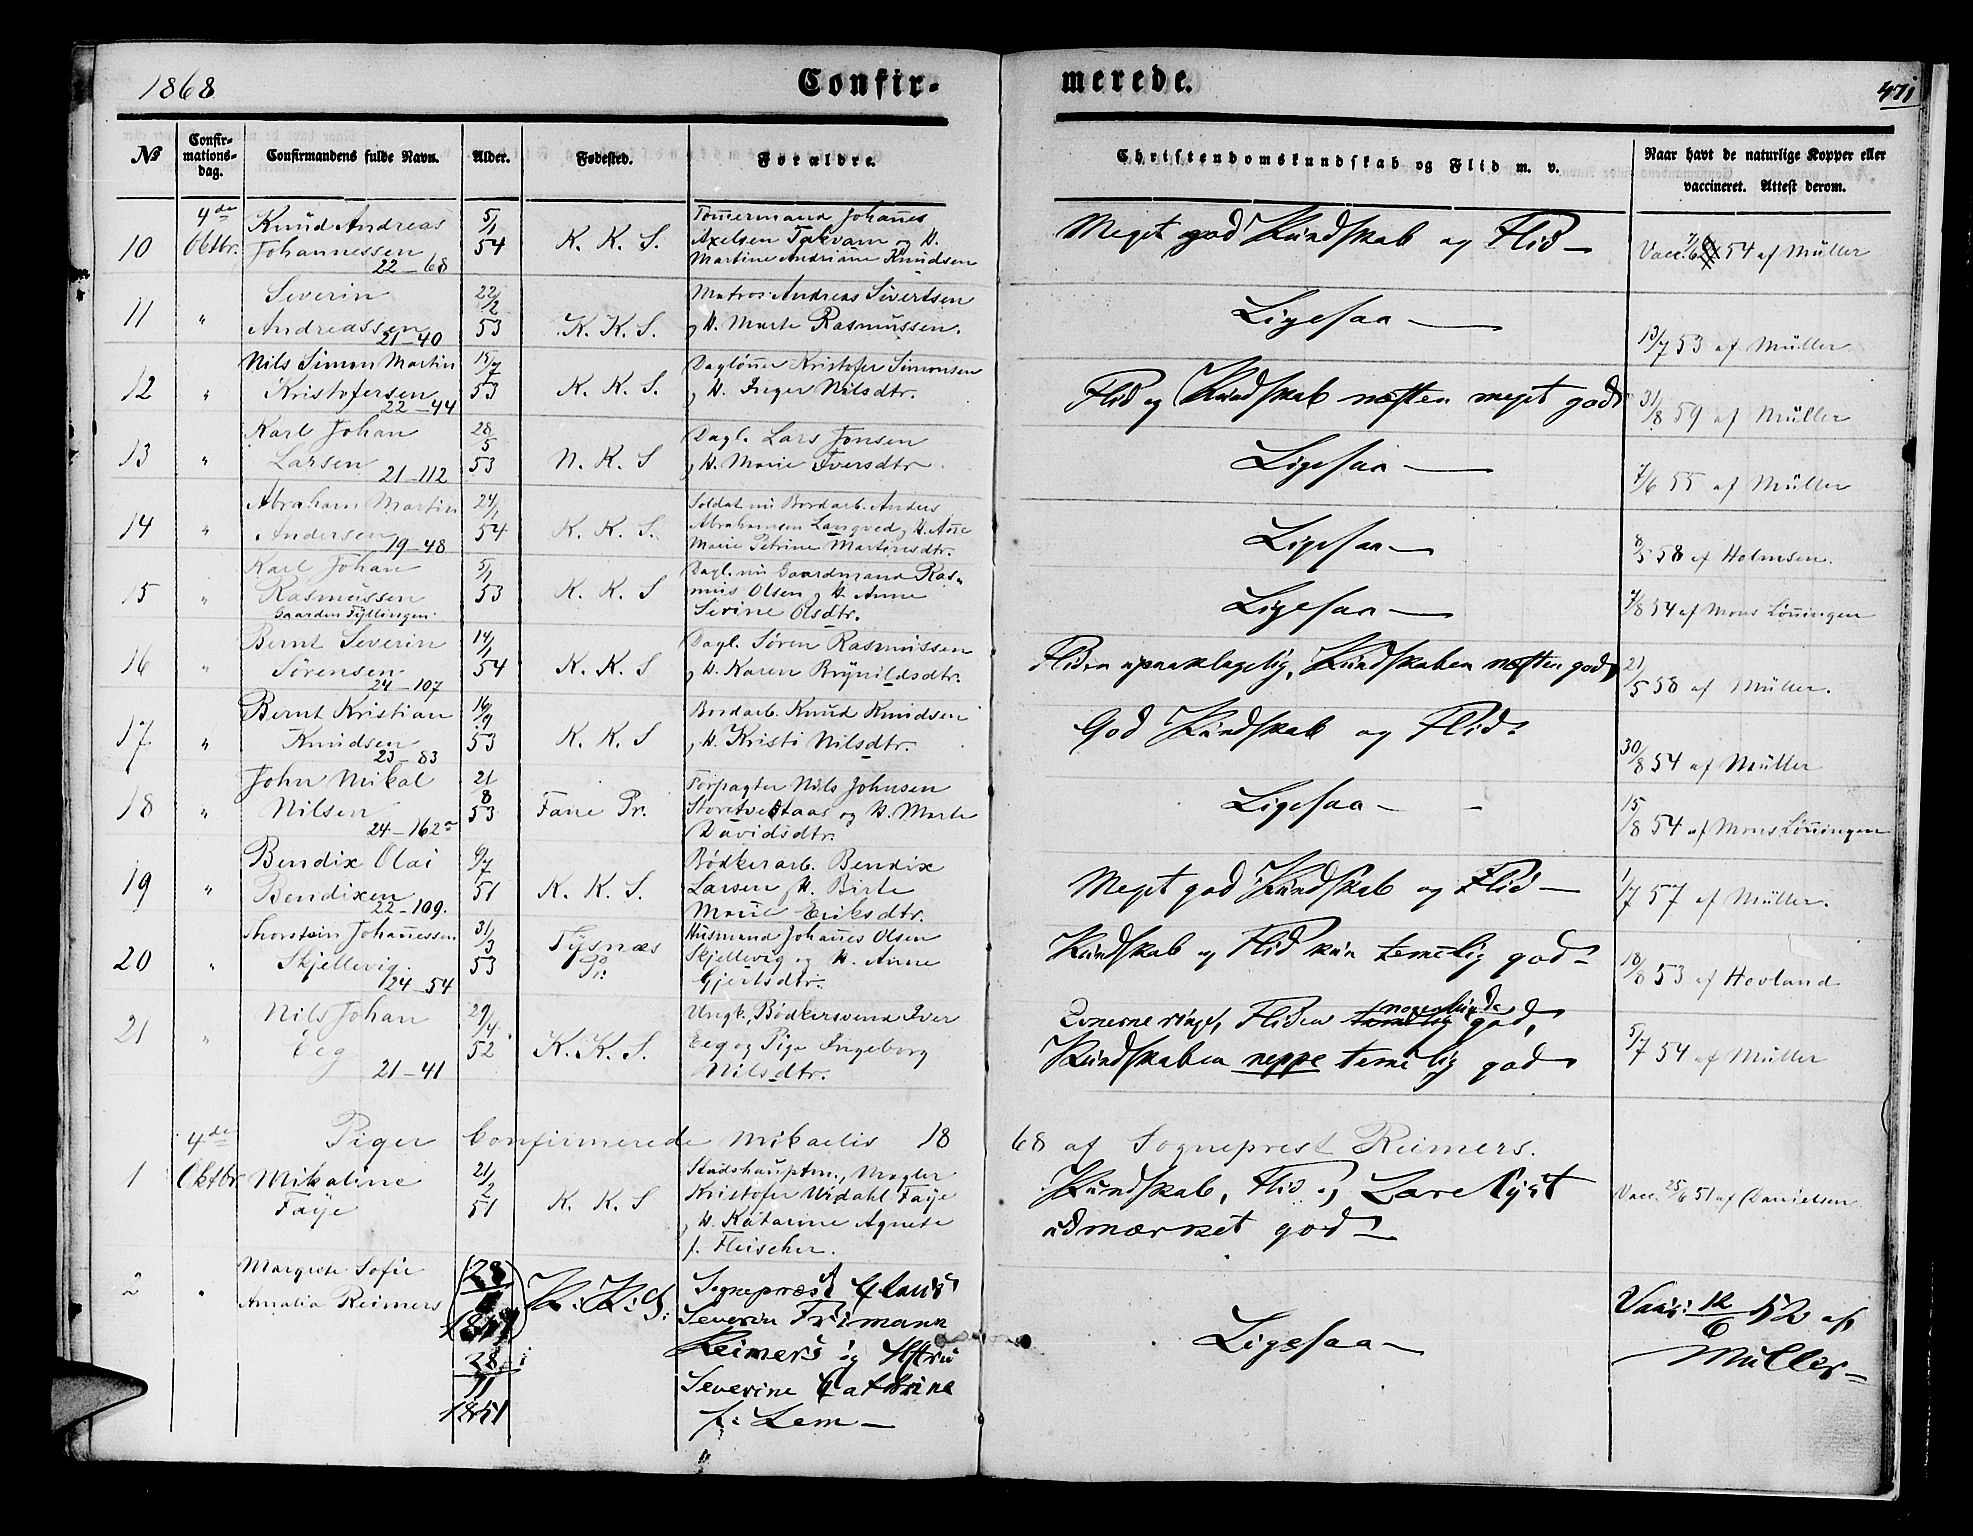 1868
Confir-
merede.
471
No
Confir-
mations-
dag.
Confirmandens fulde Navn.
Alder.
Fødested.
Forældre.
Christendomskundskab og Flid m. v.
Naar havt de naturlige Kopper eller
vaccineret. Attest derom.
10 4de Oktbr.
Knud Andreas
Johannessen
22-68
5/1 54
K. K. S.
Tømmermand Johannes
Axelsen Takvam og H.
Martine Andriane Knudsen
Meget god Kundskab og Flid
Vacc. 7/6 54 af Müller
11 "
Severin
Andreassen
21-40
22/2 53
K. K. S.
Matros Andreas Sivertsen
og H. Marte Rasmussen.
Ligesaa
13/7 53 af Müller
12 "
Nils Simon Martin
Kristofersen
22-44
15/7 53
K. K. S.
Dagløner Kristofer Simonsen
og H. Inger Nilsdtr.
Flid og Kundskab næsten meget god
31/8 59 af Müller
13 "
Karl Johan
Larsen
21-112
28/5 53
N. K. S
Dagl. Lars Jonsen
og H. Marie Iversdtr.
Ligesaa
7/6 55 af Müller
14 "
Abraham Martin
Andersen
19-48
24/1 54
K. K. S.
Soldat nu Bordarb. Anders
Abrahamsen Langved og H. Anne
Marie Petrine Martinsdtr.
Ligesaa
8/5 58 af Holmsen.
15 "
Karl Johan
Rasmussen
Gaarden Fyllingen.
5/1 53
K. K. S
Dagl. nu Gaardmand Ras-
mus Olsen og H. Anne
Sevrine Olsdtr.
Ligesaa
7/8 54 af Mons Lönningen
16 "
Bernt Severin
Sörensen
24-107
14/1 54
K. K. S
Dagl. Søren Rasmussen
og H. Karen Brynildsdtr.
Fliden upaaklagelig, Kundskaben næsten god
21/5 58 af Müller.
17. "
Bernt Kristian
Knudsen
23-83
16/9 53
K. K. S
Bordarb. Knud Knudsen
og H. Kristi Nilsdtr.
God Kundskab og Flid
30/8 54 af Müller
18 "
John Mikal
Nilsen
24-162
21/8 53
Fane Pr.
Forpagter Nils Johnsen
Storetvetaas og H. Marte
Davidsdtr.
Ligesaa
15/8 54 af Mons Lönningen
19 "
Bendix Olai
Bendixen
22-109.
9/7 51
K. K. S.
Bødkerarb. Bendix
Larsen og H. Birte
Marie Eriksdtr.
Meget god Kundskab og Flid
1/7 57 af Müller.
20 "
Thorstein Johannessen
Skjellevig.
24-54
31/3 53
Tysnæs
Pr.
Husmand Johannes Olsen
Skjellevig og H. Anne
Gjertsdtr.
Kundskab og Flid kun temelig god
18/8 53 af Hovland
21 "
Nils Johan
Eeg
21-41
29/4 52
K. K. S.
Ungk., Bødkersvend Iver
Eeg og Pige Ingeborg
Nilsdtr.
Evnerne ringe, Fliden temelig nogenlunde god,
Kundskaben neppe temelig god
5/7 54 af Müller
Piger Confirmerede Mikaelis 18
68 af Sogneprest Reimers.
1 4de Oktbr
Mikaline
Faye
21/2 51
K. K. S
Stadshauptm., Mægler
Kristofer Widahl Faye
og H. Katarine Agnete
f. Fleischer.
Kundskab, Flid og Lærelyst
udmærket god
Vacc. 25/6 51 af Danielsen
2 "
Margrete Sofie
Amalia Reimers
28
28
11
1851
K. K. S.
Sognepræst Claus
Severin Friimann
Reimers og Hstru
Severine Cathrine
f. Lem
Ligesaa
Vacc: 12/6 52 af
Müller